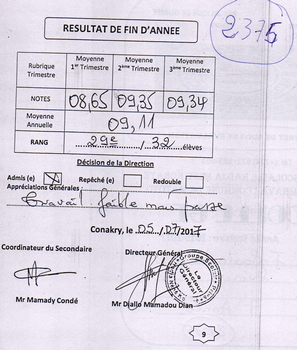 RESULTAT DE FIN D'ANNEE
2375
Rubrique Trimestre Moyenne 1er Trimestre Moyenne 2ème Trimestre Moyenne 3ème Trimestre
NOTES 08,65 09,35 09,34
Moyenne Annuelle 09,11
RANG 29e / 32 élèves
Décision de la Direction
Admis (e) Repêché (e) Redouble
Appréciations Générales :
Travail faible mais passe
Conakry, le 05/07/2017
Coordinateur du Secondaire Directeur Général
Le Directeur Général
Mr Mamady Condé Mr Diallo Mamadou Dian
9